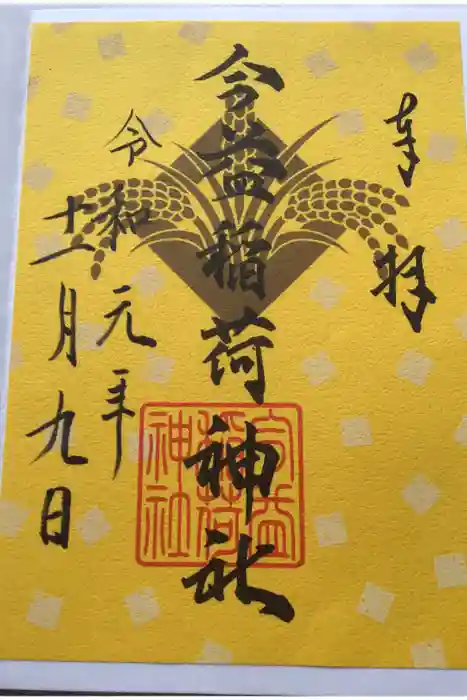 奉拝
益稲荷神社
令和元年
十一月九日
益
稲荷
神社